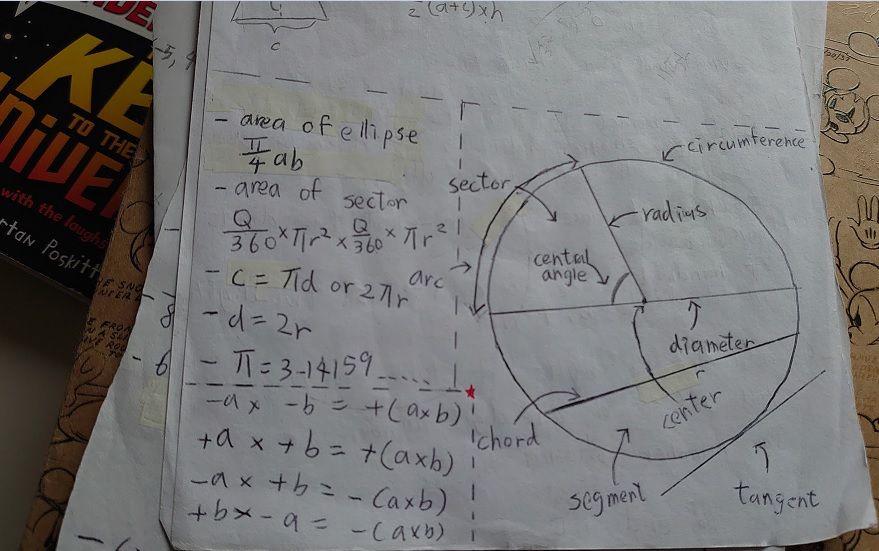 c
2 (a+c)xh
-5, 4
KE
TO THE
NIVE
with the laughs
rtan Poskitt
- area of ellipse
π/4 ab
- area of sector
Q/360 × πr² × Q/360 × πr²
- C = πd or 2πr
- d = 2r
- π = 3-14159......
-a x -b = +(axb)
+a x +b = +(axb)
-a x +b = -(axb)
+b x -a = -(axb)
8
- 6
circumference
sector
radius
central
angle
arc
diameter
center
chord
segment
tangent